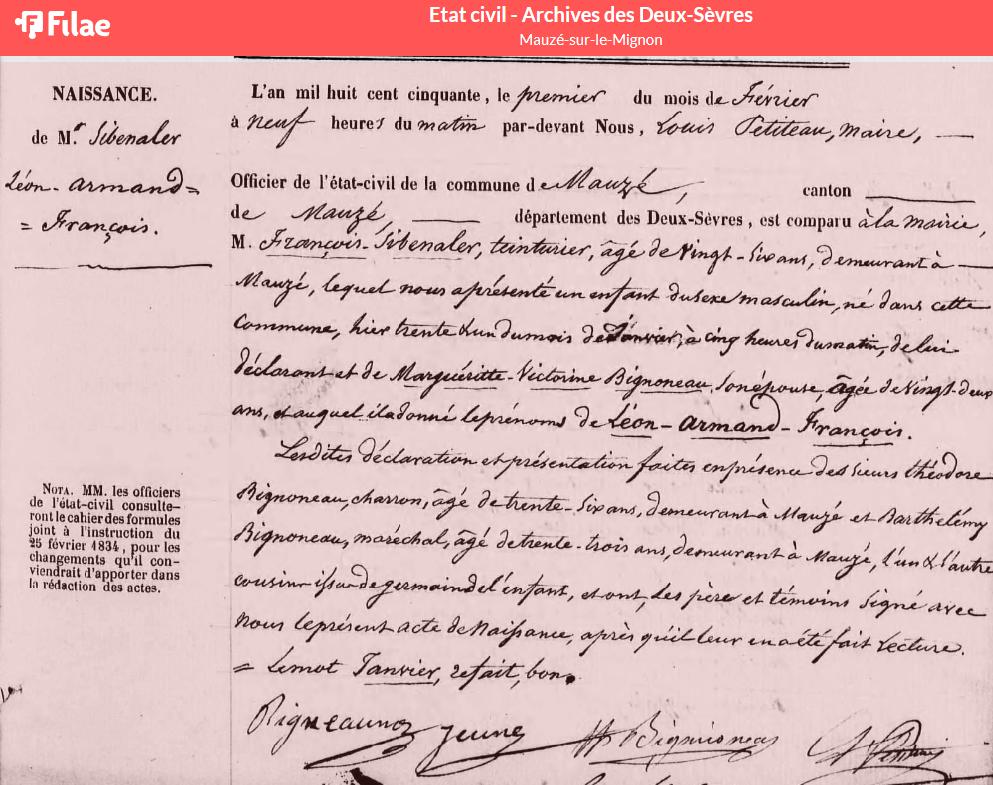 Filae
Etat civil - Archives des Deux-Sèvres
Mauzé-sur-le-Mignon
NAISSANCE.
de M.r Sibenaler
Léon-armand=
= François.
L'an mil huit cent cinquante, le premier du mois de Février
à neuf heures du matin par-devant Nous, Louis Petiteau, maire,
Officier de l'état-civil de la commune de Mauzé, canton
de Mauzé, département des Deux-Sèvres, est comparu à la mairie,
M. François Sibenaler, teinturier, âgé de Vingt-Six ans, demeurant à
Mauzé, lequel nous a présenté un enfant du sexe masculin, né dans cette
Commune, hier trente & un du mois de Janvier, à cinq heures du matin, de lui
déclarant et de Marguéritte-Victorine Bignoneau, son épouse, âgée de Vingt-deux
ans, et auquel il a donné le prénoms de Léon-armand-François.
Lesdites déclaration et présentation faites en présence des Sieurs théodore
Bignoneau, charron, âgé de trente-Six ans, demeurant à Mauzé et Barthelémy
Bignoneau, maréchal, âgé de trente-trois ans, demeurant à Mauzé, l'un & l'autre
cousins issus de germain de l'enfant, et ont, les père et témoins Signé avec
nous le présent acte de Naissance, après qu'il leur en a été fait Lecture.
= Le mot Janvier, refait, bon.
NOTA. MM. les officiers
de l'état-civil consulte-
ront le cahier des formules
joint à l'instruction du
25 février 1834, pour les
changements qu'il con-
viendrait d'apporter dans
la rédaction des actes.
jeune